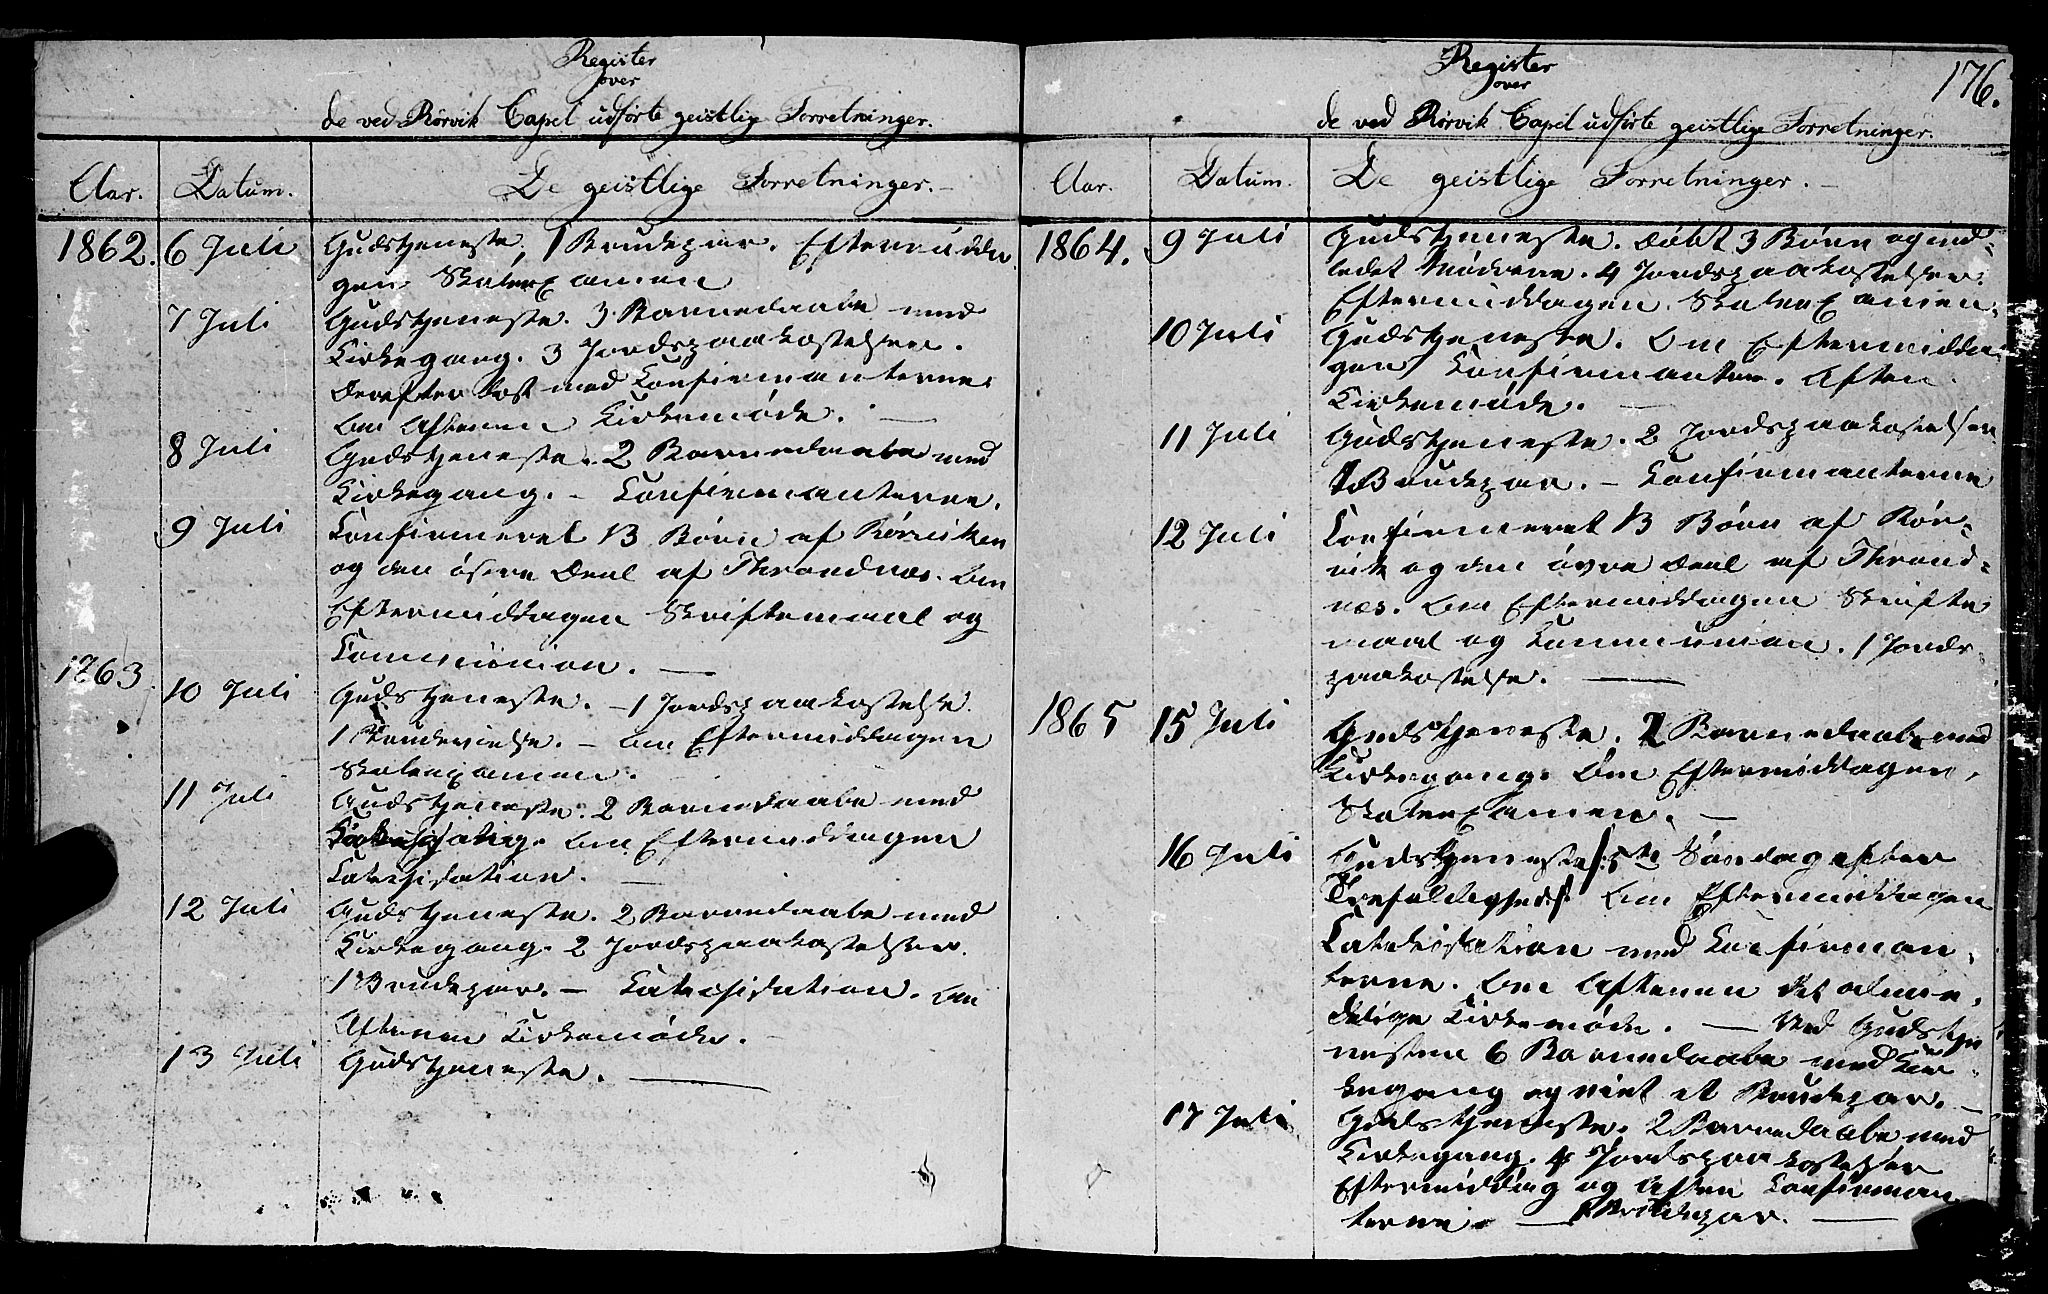 Register
over
de ved Rørvik Capel udførte geistlige Forretninger.
Aar. Datum. De geistlige Forretninger. -
1862. 6 Juli Gudstjeneste, 1 Brudepar. Eftermidda
gen SkoleExamen
7 Juli Gudstjeneste. 3 Barnedaabe med
Kirkegang. 3 Jordspaakastelser.
Derefter læst med Confirmanterne.
Om Aftenen Kirkemøde. -
8 Juli Gudstjeneste. 2 Barnedaabe med
Kirkegang. - Confirmanterne.
9 Juli Confirmeret 13 Børn af Rørviken
og den øvre Deel af Throndnæs. Om
Eftermiddagen Skriftemaal og
Communion. -
1863. 10 Juli Gudstjeneste. - 1 Jordspaakastelse.
1 Brudevielse. - Om Eftermiddagen
Skoleexamen.
11 Juli Gudstjeneste. 2 Barnedaabe med
Om Eftermiddagen
Catechisation. -
12 Juli Gudstjeneste. 2 Barnedaabe med
Kirkegang. 2 Jordspaakastelser.
1 Brudepar. - Catechisation. Om
Aftenen Kirkemøde. -
13 Juli Gudstjeneste. -
176.
Register
over
de ved Rørvik Capel udførte geistlige Forretninger.
Aar. Datum. De geistlige Forretninger. -
1864. 9 Juli Gudstjeneste. Døbt 3 Børn og ind-
ledet Mødrene. 4 Jordspaakastelser.
Eftermiddagen SkoleExamen.
10 Juli Gudstjeneste. Om Eftermidda-
gen Confirmanterne. Aften
Kirkemøde. -
11 Juli Gudstjeneste. 2 Jordspaakastelser
1 Brudepar. - Confirmanterne
12 Juli Confirmeret 13 Børn af Rør-
vik og den øvre Deel af Thrond-
næs. Om Eftermiddagen Skrifte
maal og Communion. 1 Jords-
paakastelse. -
1865 15 Juli Gudstjeneste. 2 Barnedaabe med
Kirkegang. Om Eftermiddagen
SkoleExamen. -
16 Juli Gudstjeneste /: 5te Søndag efter
Trefoldighed :/ Om Eftermiddagen
Catechisation med Confirman-
terne. Om Aftenen det almin-
delige Kirkemøde. - Ved Gudstje
nesten 6 Barnedaabe med Kir-
kegang og viet et Brudepar. -
17 Juli Gudstjeneste. 2 Barnedaabe med
Kirkegang. 4 Jordspaakastelser
Eftermiddag og Aften Confirman
terne. - 1 Brudepar. -